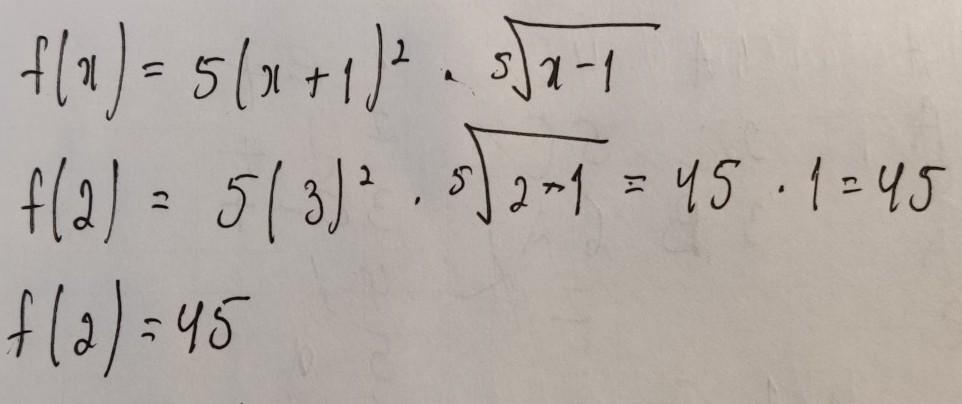 f(x) = 5(x+1)² · ⁵√(x-1)
f(2) = 5(3)² · ⁵√(2-1) = 45 · 1 = 45
f(2) = 45